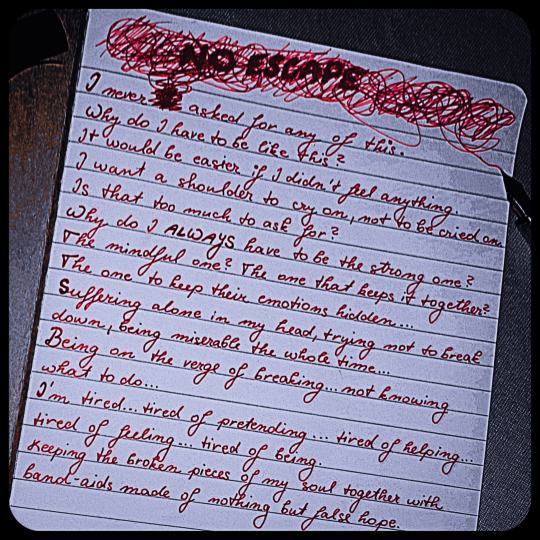 NO ESCAPE
I never asked for any of this.
Why do I have to be like this?
It would be easier if I didn't feel anything.
I want a shoulder to cry on, not to be cried on.
Is that too much to ask for?
Why do I ALWAYS have to be the strong one?
The mindful one? The one that keeps it together?
The one to keep their emotions hidden...
Suffering alone in my head, trying not to break
down, being miserable the whole time...
Being on the verge of breaking... not knowing
what to do...
I'm tired... tired of pretending... tired of helping...
tired of feeling... tired of being.
Keeping the broken pieces of my soul together with
band-aids made of nothing but false hope.